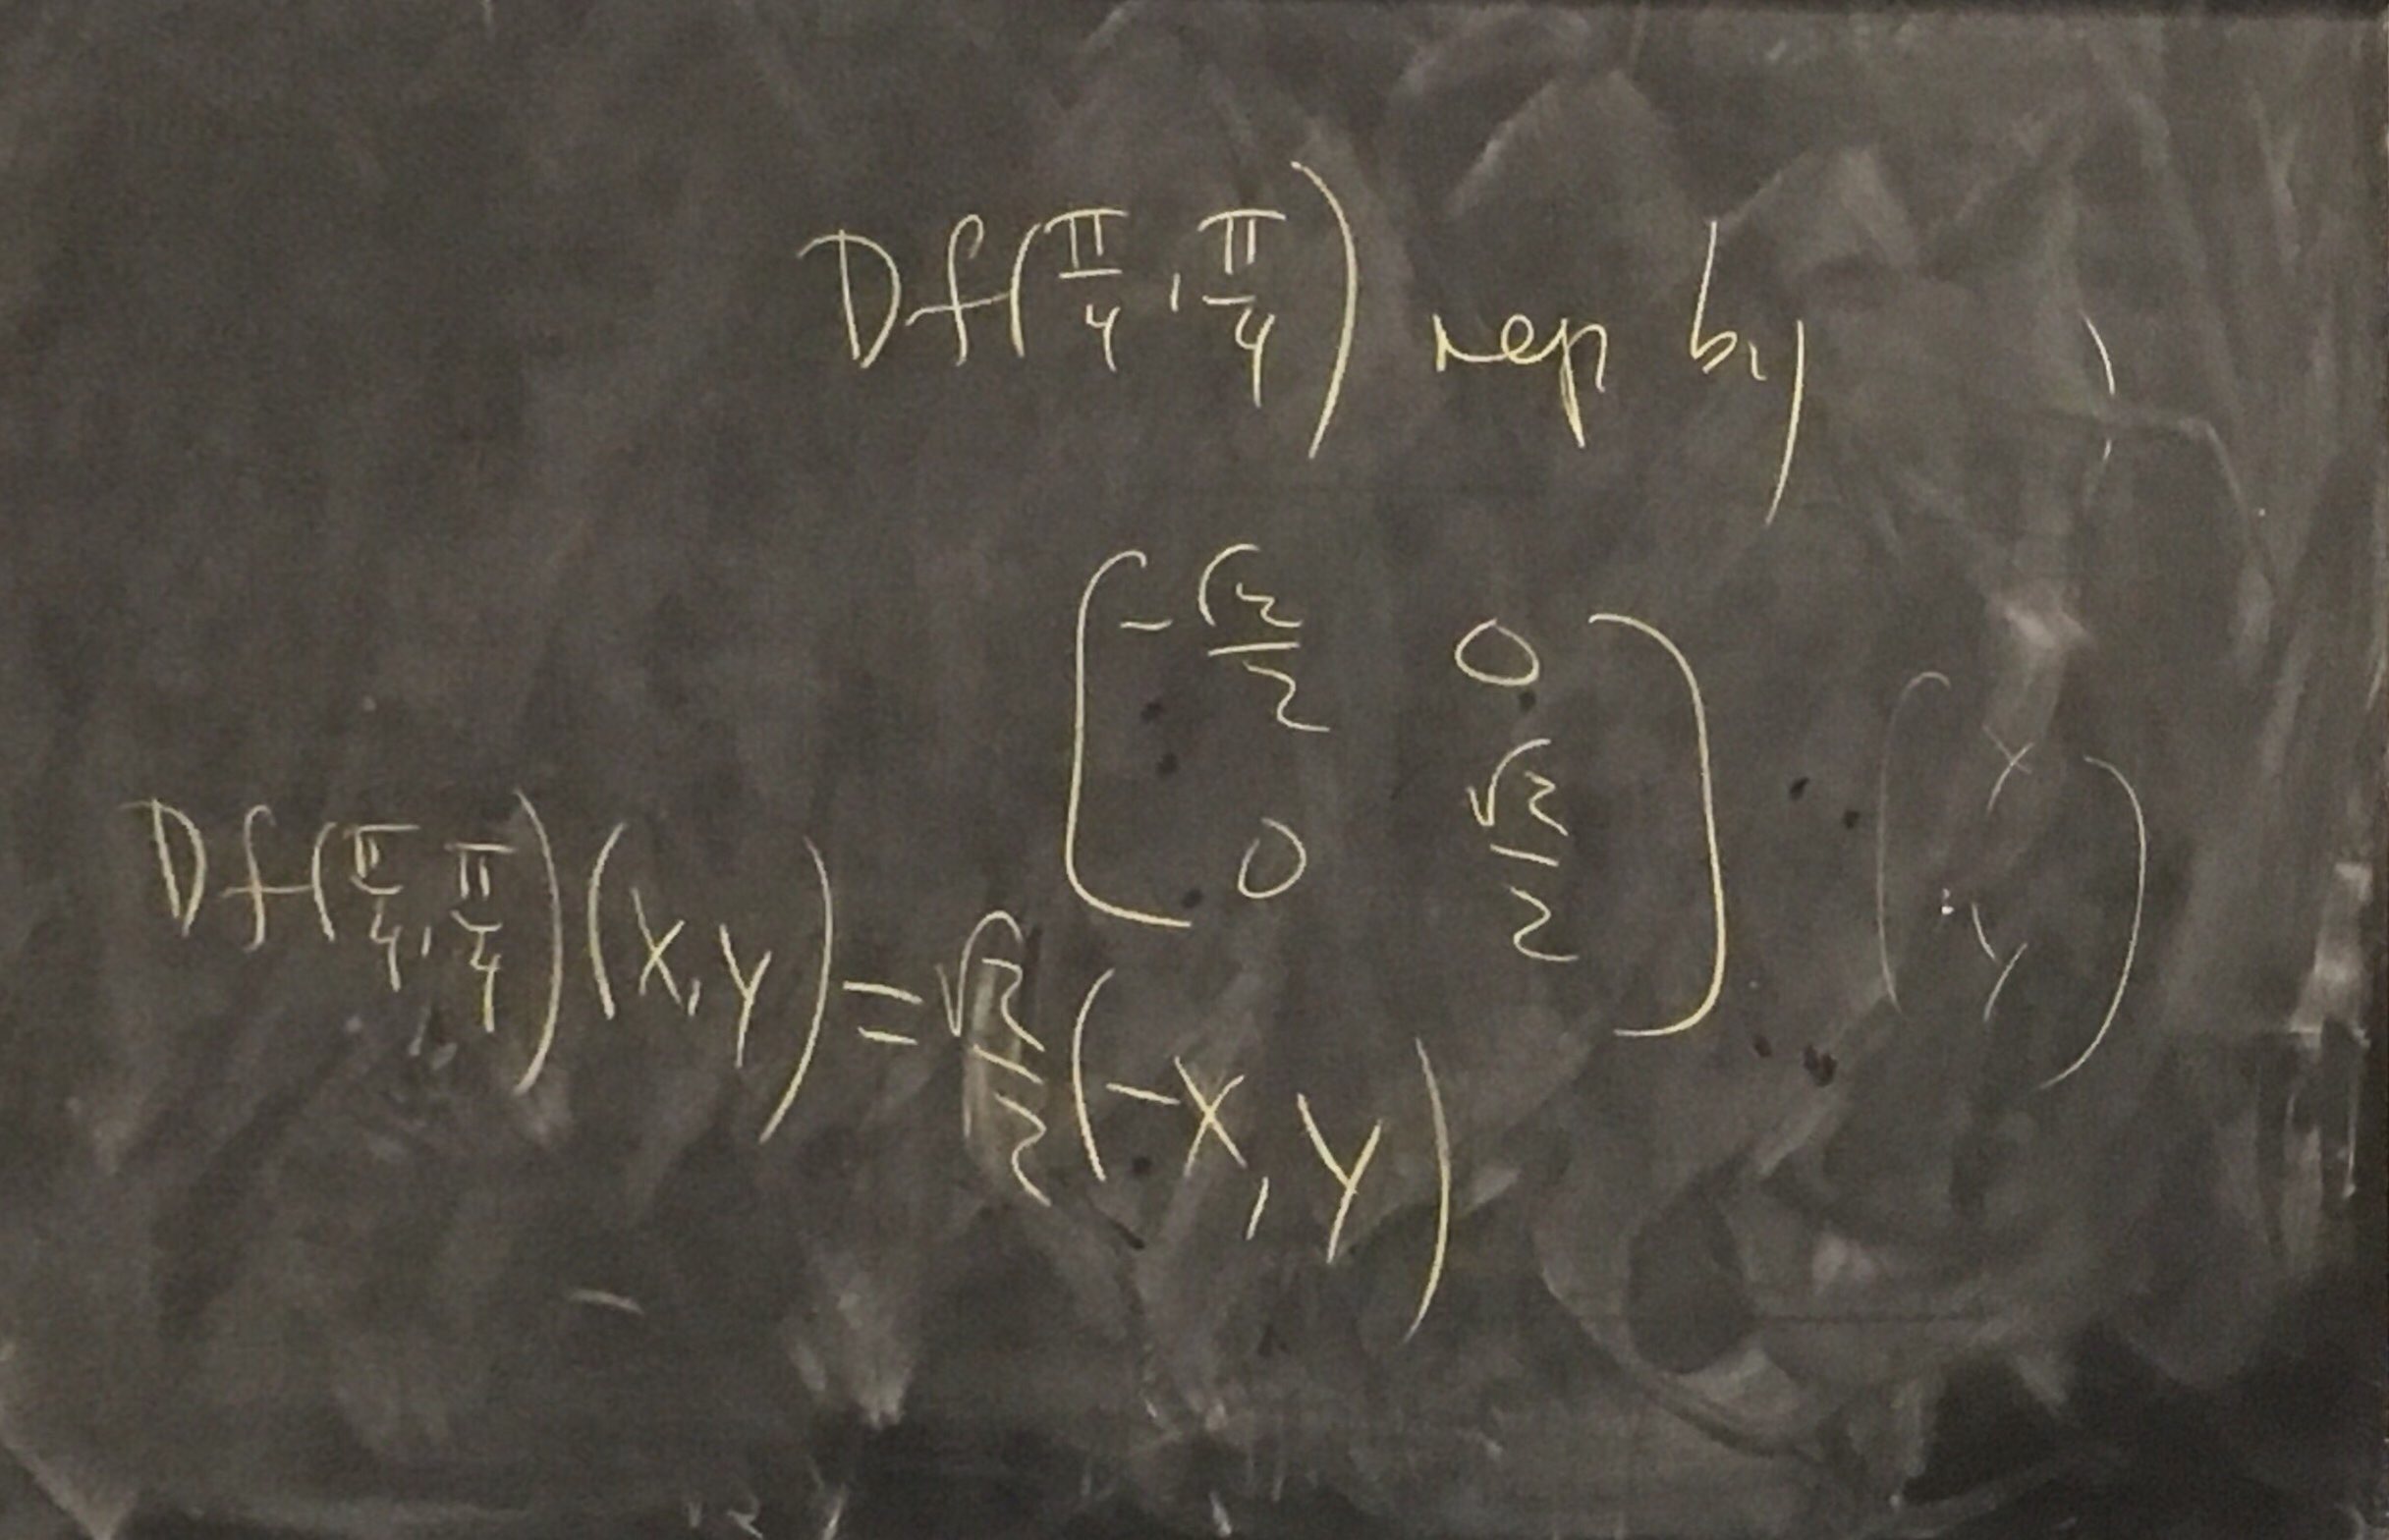 Df(π/4, π/4) rep by
[-√2/2 0
0 √2/2] (x
y)
Df(π/4, π/4)(x, y) = √2/2 (-x, y)